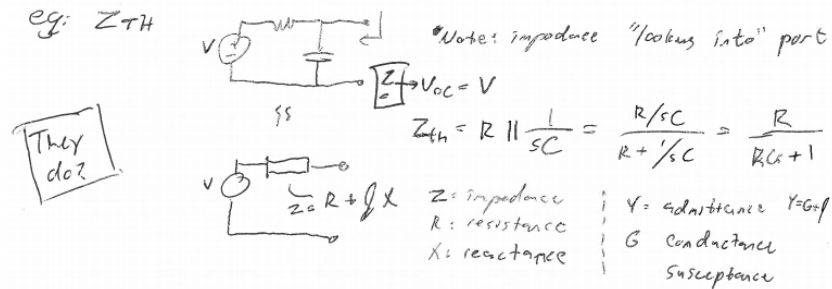 eg: ZTH
"Note: impedance "looking into" port
V
Z
→ Voc = V
Zth = R || 1/sC = (R/sC)/(R + 1/sC) = R/(RCs + 1)
They
do?
V
Z = R + jX
Z = impedance
R: resistance
X: reactance
Y = admittance Y=G+j
G conductance
susceptance